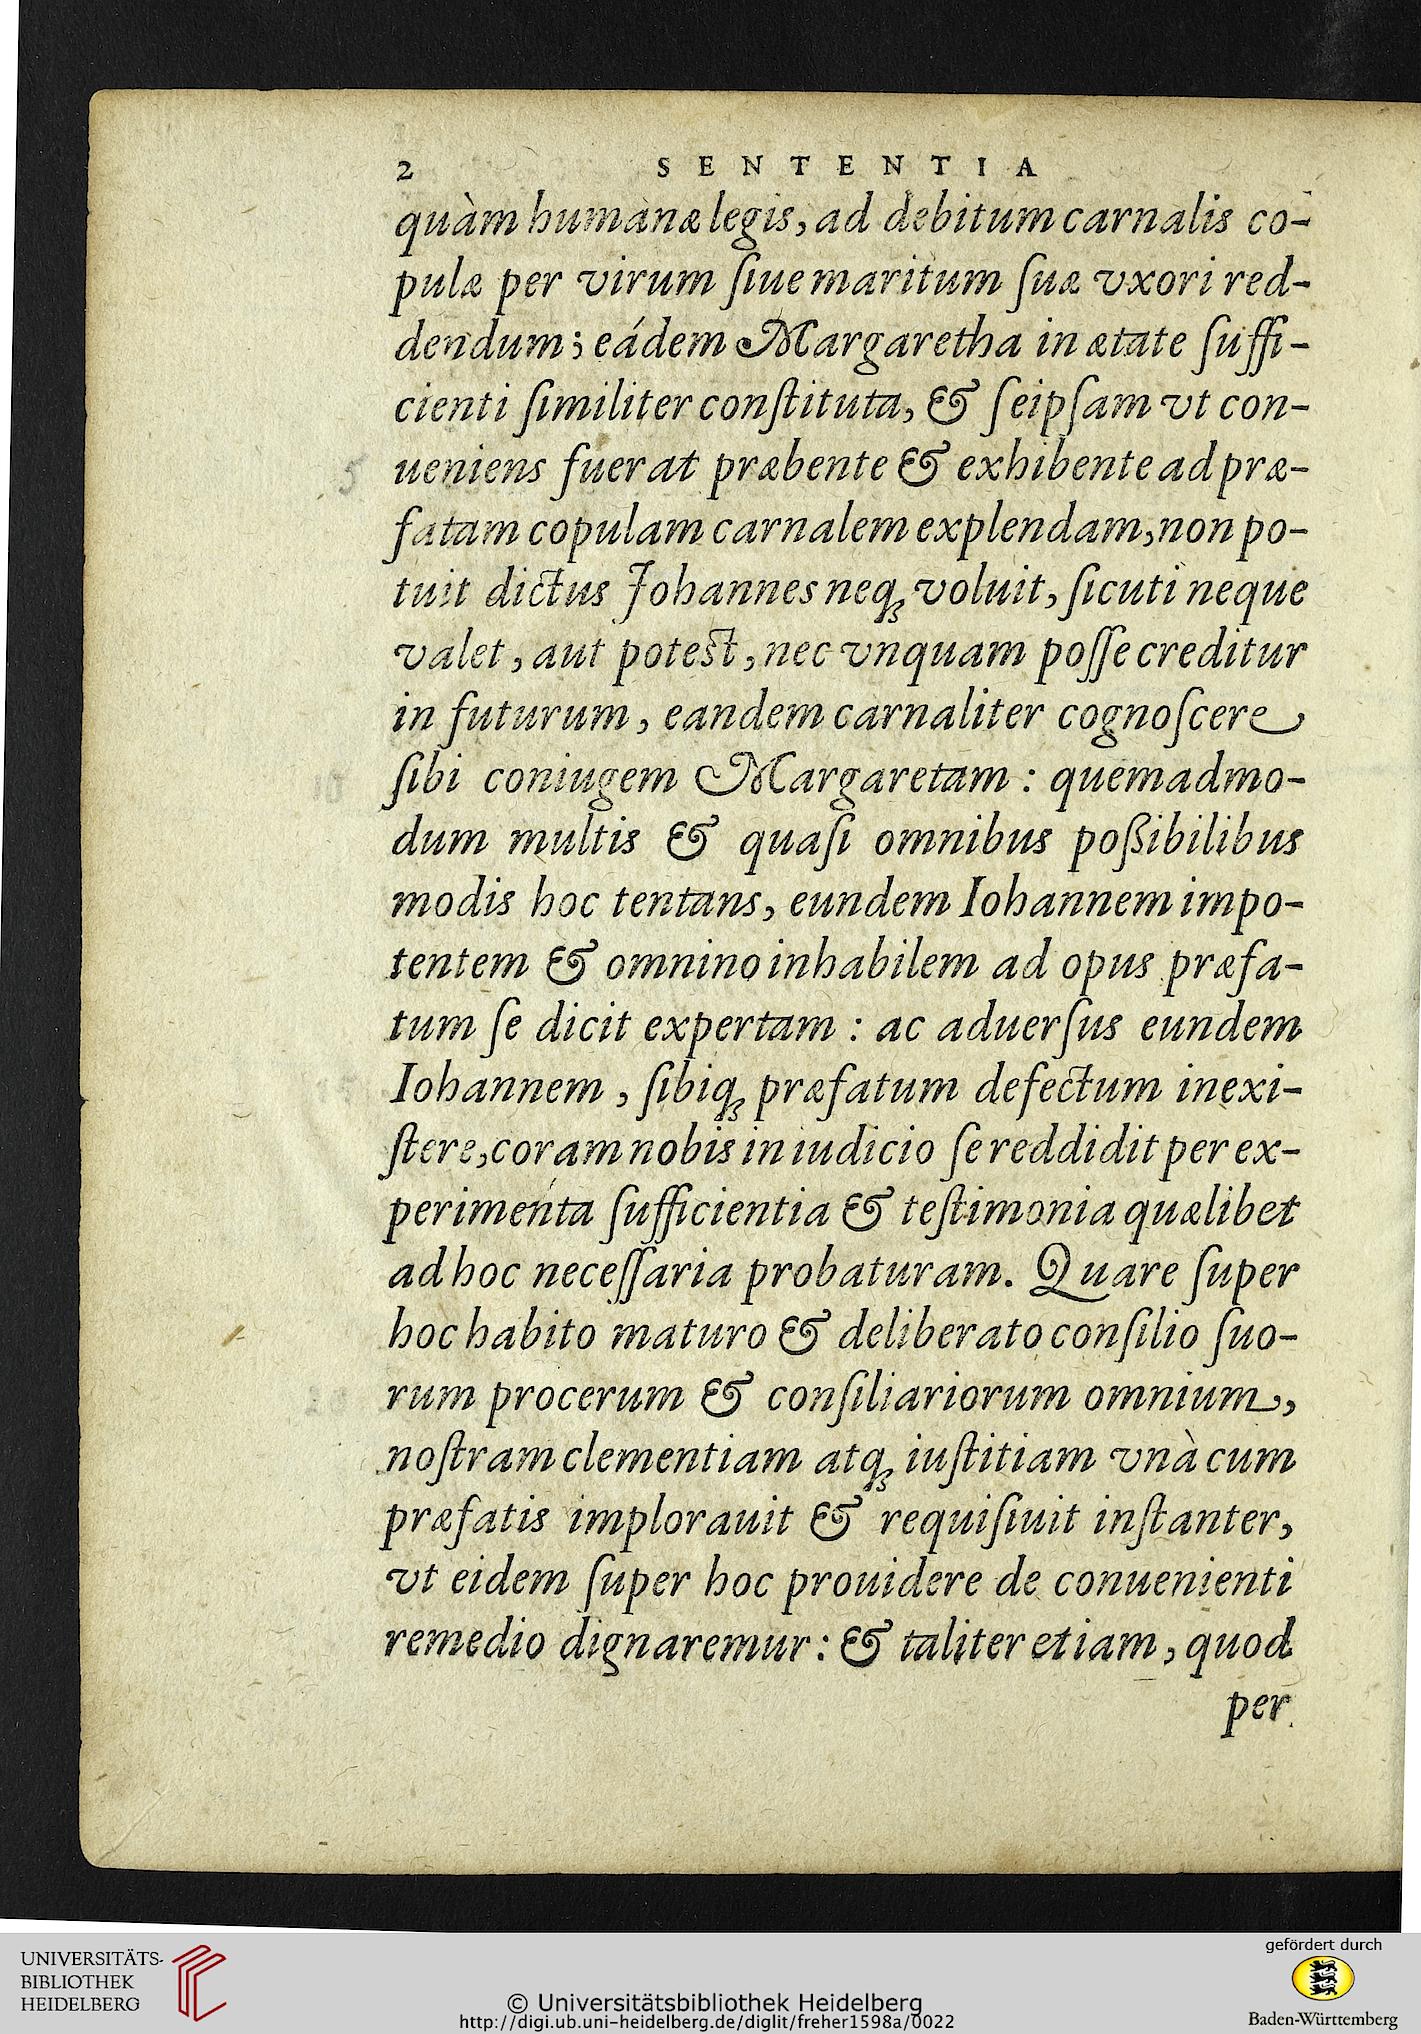 2 SENTENTIA
quàm humanæ legis, ad debitum carnalis co-
pulæ per virum ſiue maritum ſuæ vxori red-
dendum; eádem Margaretha in ætate ſuffi-
cienti ſimiliter conſtituta, & ſeipſam vt con-
ueniens fuerat præbente & exhibente ad præ-
fatam copulam carnalem explendam, non po-
tuit dictus Johannes neqꝫ voluit, ſicuti neque
valet, aut potest, nec vnquam poſſe creditur
in futurum, eandem carnaliter cognoſcere
ſibi coniugem Margaretam: quemadmo-
dum multis & quaſi omnibus poßibilibus
modis hoc tentans, eundem Iohannem impo-
tentem & omnino inhabilem ad opus præfa-
tum ſe dicit expertam: ac aduerſus eundem
Iohannem, ſibiqꝫ præfatum defectum inexi-
ſtere, coram nobis in iudicio ſe reddidit per ex-
perimenta ſufficientia & teſtimonia quælibet
ad hoc neceſſaria probaturam. Quare ſuper
hoc habito maturo & deliberato conſilio ſuo-
rum procerum & conſiliariorum omnium,
noſtram clementiam atqꝫ iuſtitiam vnà cum
præfatis implorauit & requiſiuit inſtanter,
vt eidem ſuper hoc prouidere de conuenienti
remedio dignaremur: & taliter etiam, quod
per
UNIVERSITÄTS-
BIBLIOTHEK
HEIDELBERG
© Universitätsbibliothek Heidelberg
http://digi.ub.uni-heidelberg.de/diglit/freher1598a/0022
gefördert durch
Baden-Württemberg